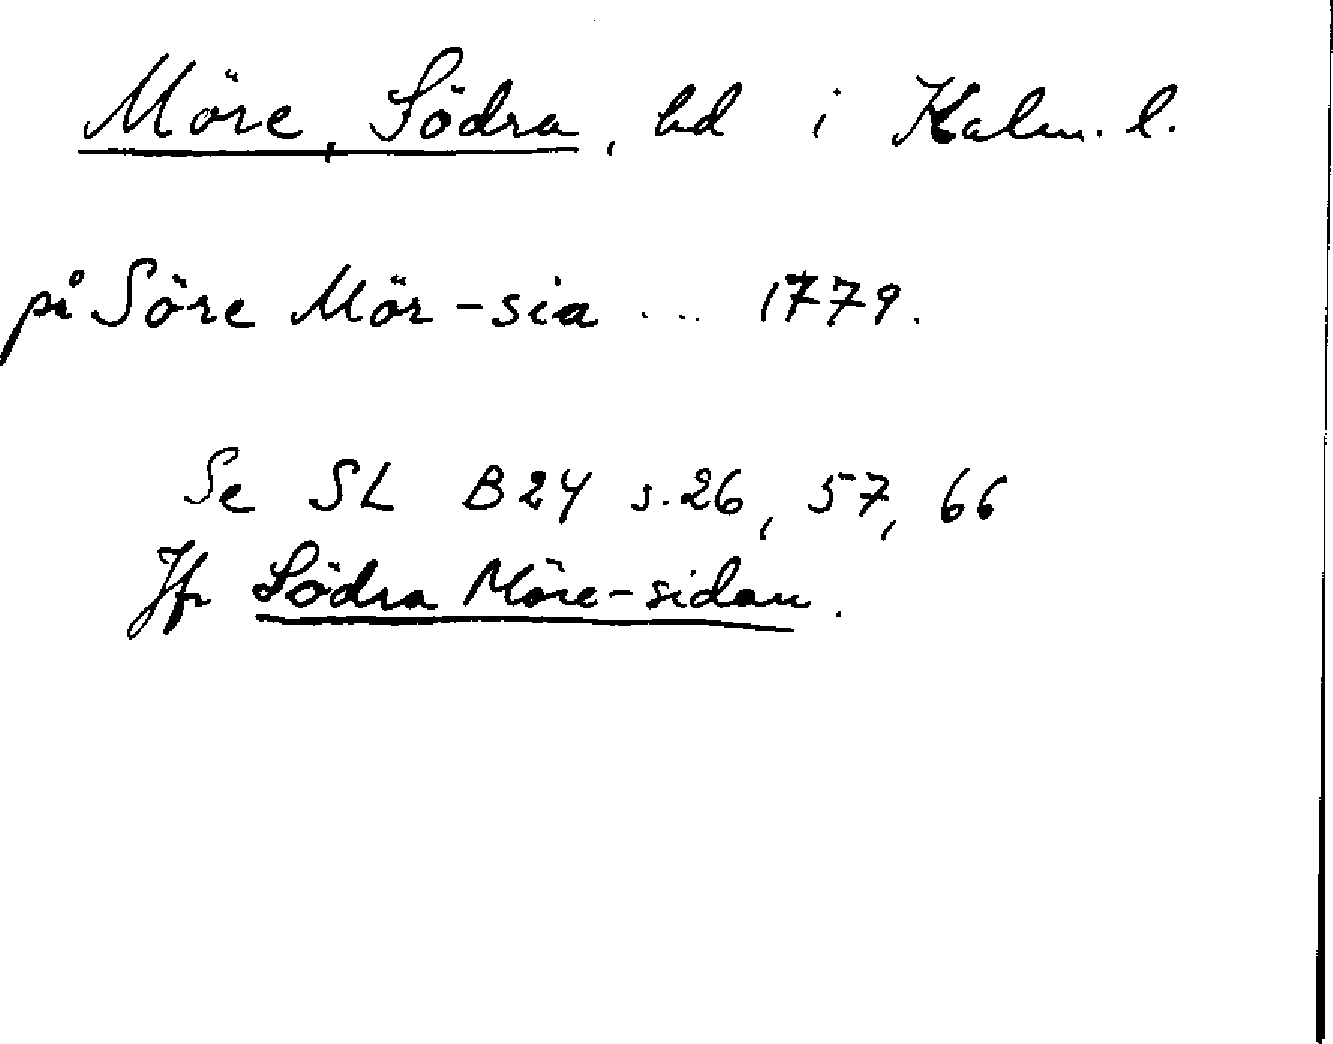 Möre, Södra, hd i Kalm. l.
på Söre Mör-sia ... 1779.
Se SL B24 s.26, 57, 66
Jfr Södra Möre-sidan.